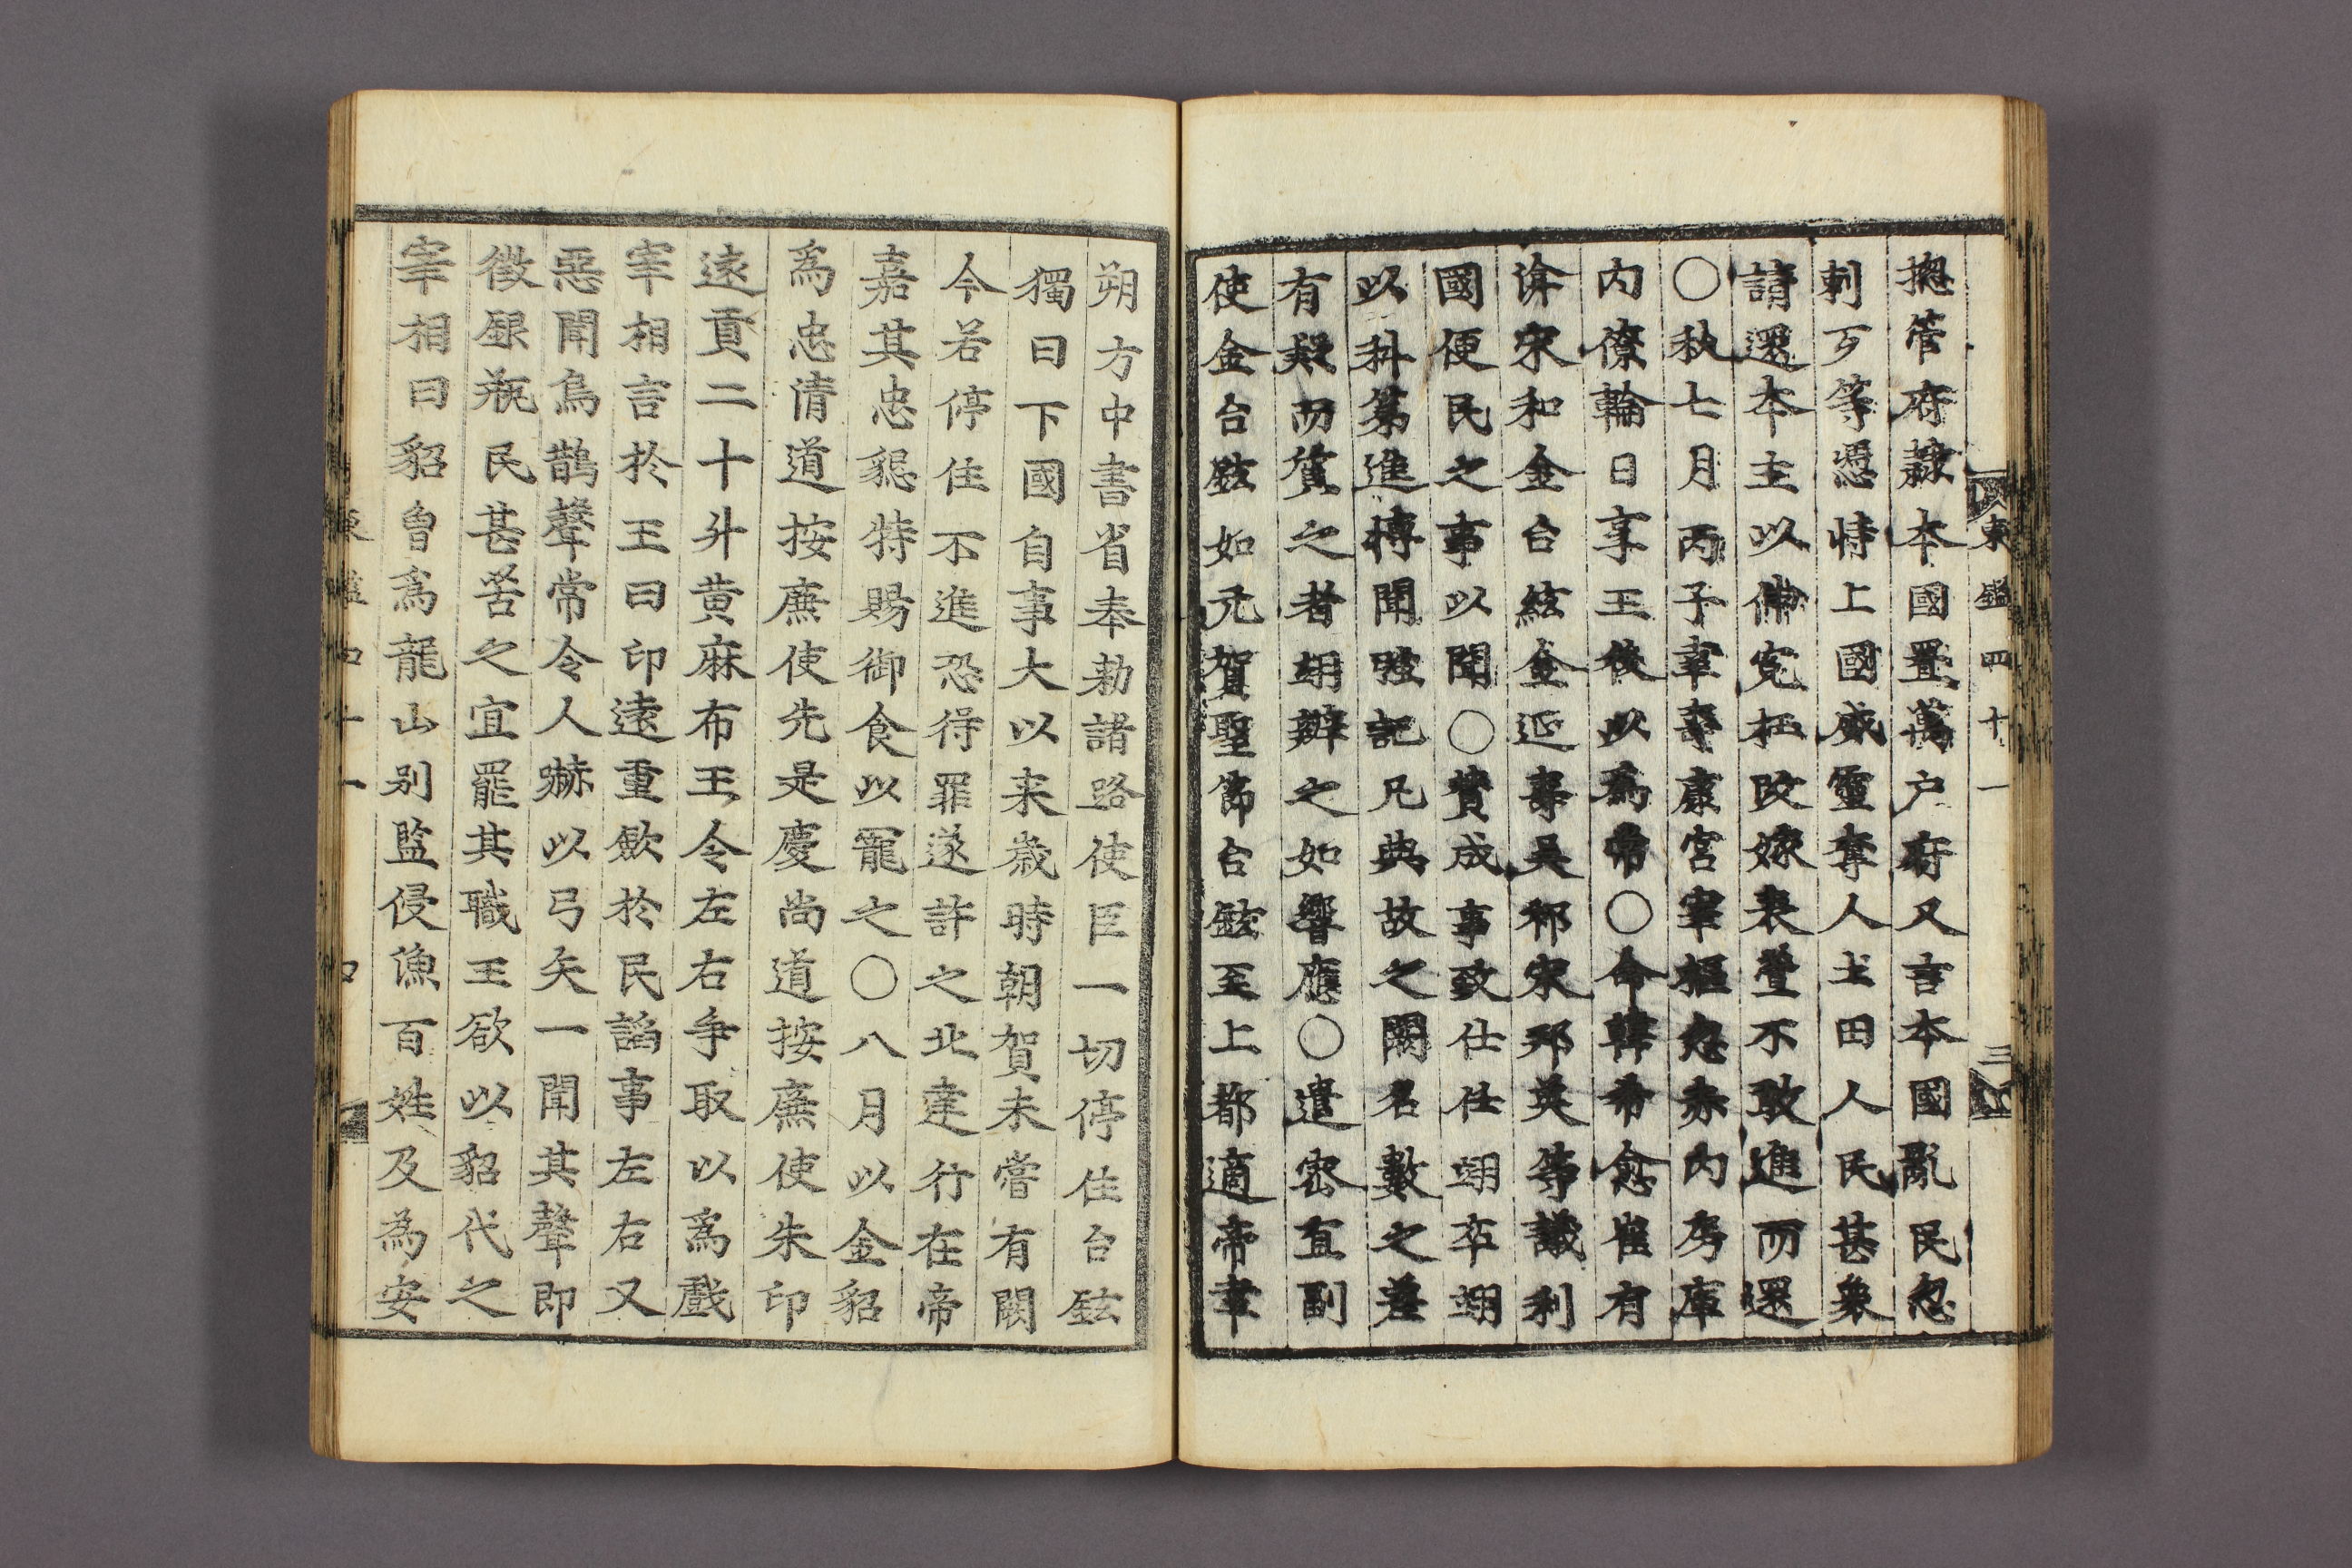 摠管府隷本國置萬户府又言本國亂民忽
刺歹等憑恃上國威靈奪人土田人民甚衆
請還本主以伸寃枉改嫁表疊不敢進而還
○秋七月丙子宰壽康宮宰樞忽赤內房庫
內僚輪日享王後以爲常○命韓希愈崔有
渰宋和金台鉉金延壽吳祁宋邦英等議利
國便民之事以聞○賛成事致仕任翊卒翊
以科第進博聞唫記凡典故之闕名數之差
有疑而質之者翊辨之如響應○遣密直副
使金台鉉如元賀聖節台鉉至上都適帝幸
朔方中書省奉勅諸路使臣一切停住台鉉
獨曰下國自事大以来歲時朝賀未嘗有闕
今若停住不進恐得罪遂許之北達行在帝
嘉其忠懇特賜御食以寵之○八月以金貂
爲忠清道按廉使先是慶尚道按廉使朱印
遠貢二十升黄麻布王令左右争取以爲戲
宰相言於王曰印遠重歛於民諂事左右又
惡聞烏鵲聲常令人嚇以弓矢一聞其聲即
徵銀瓶民甚苦之宜罷其職王欲以貂代之
宰相曰貂曾爲龍山别監侵漁百姓及為安
東鑑四十一
三